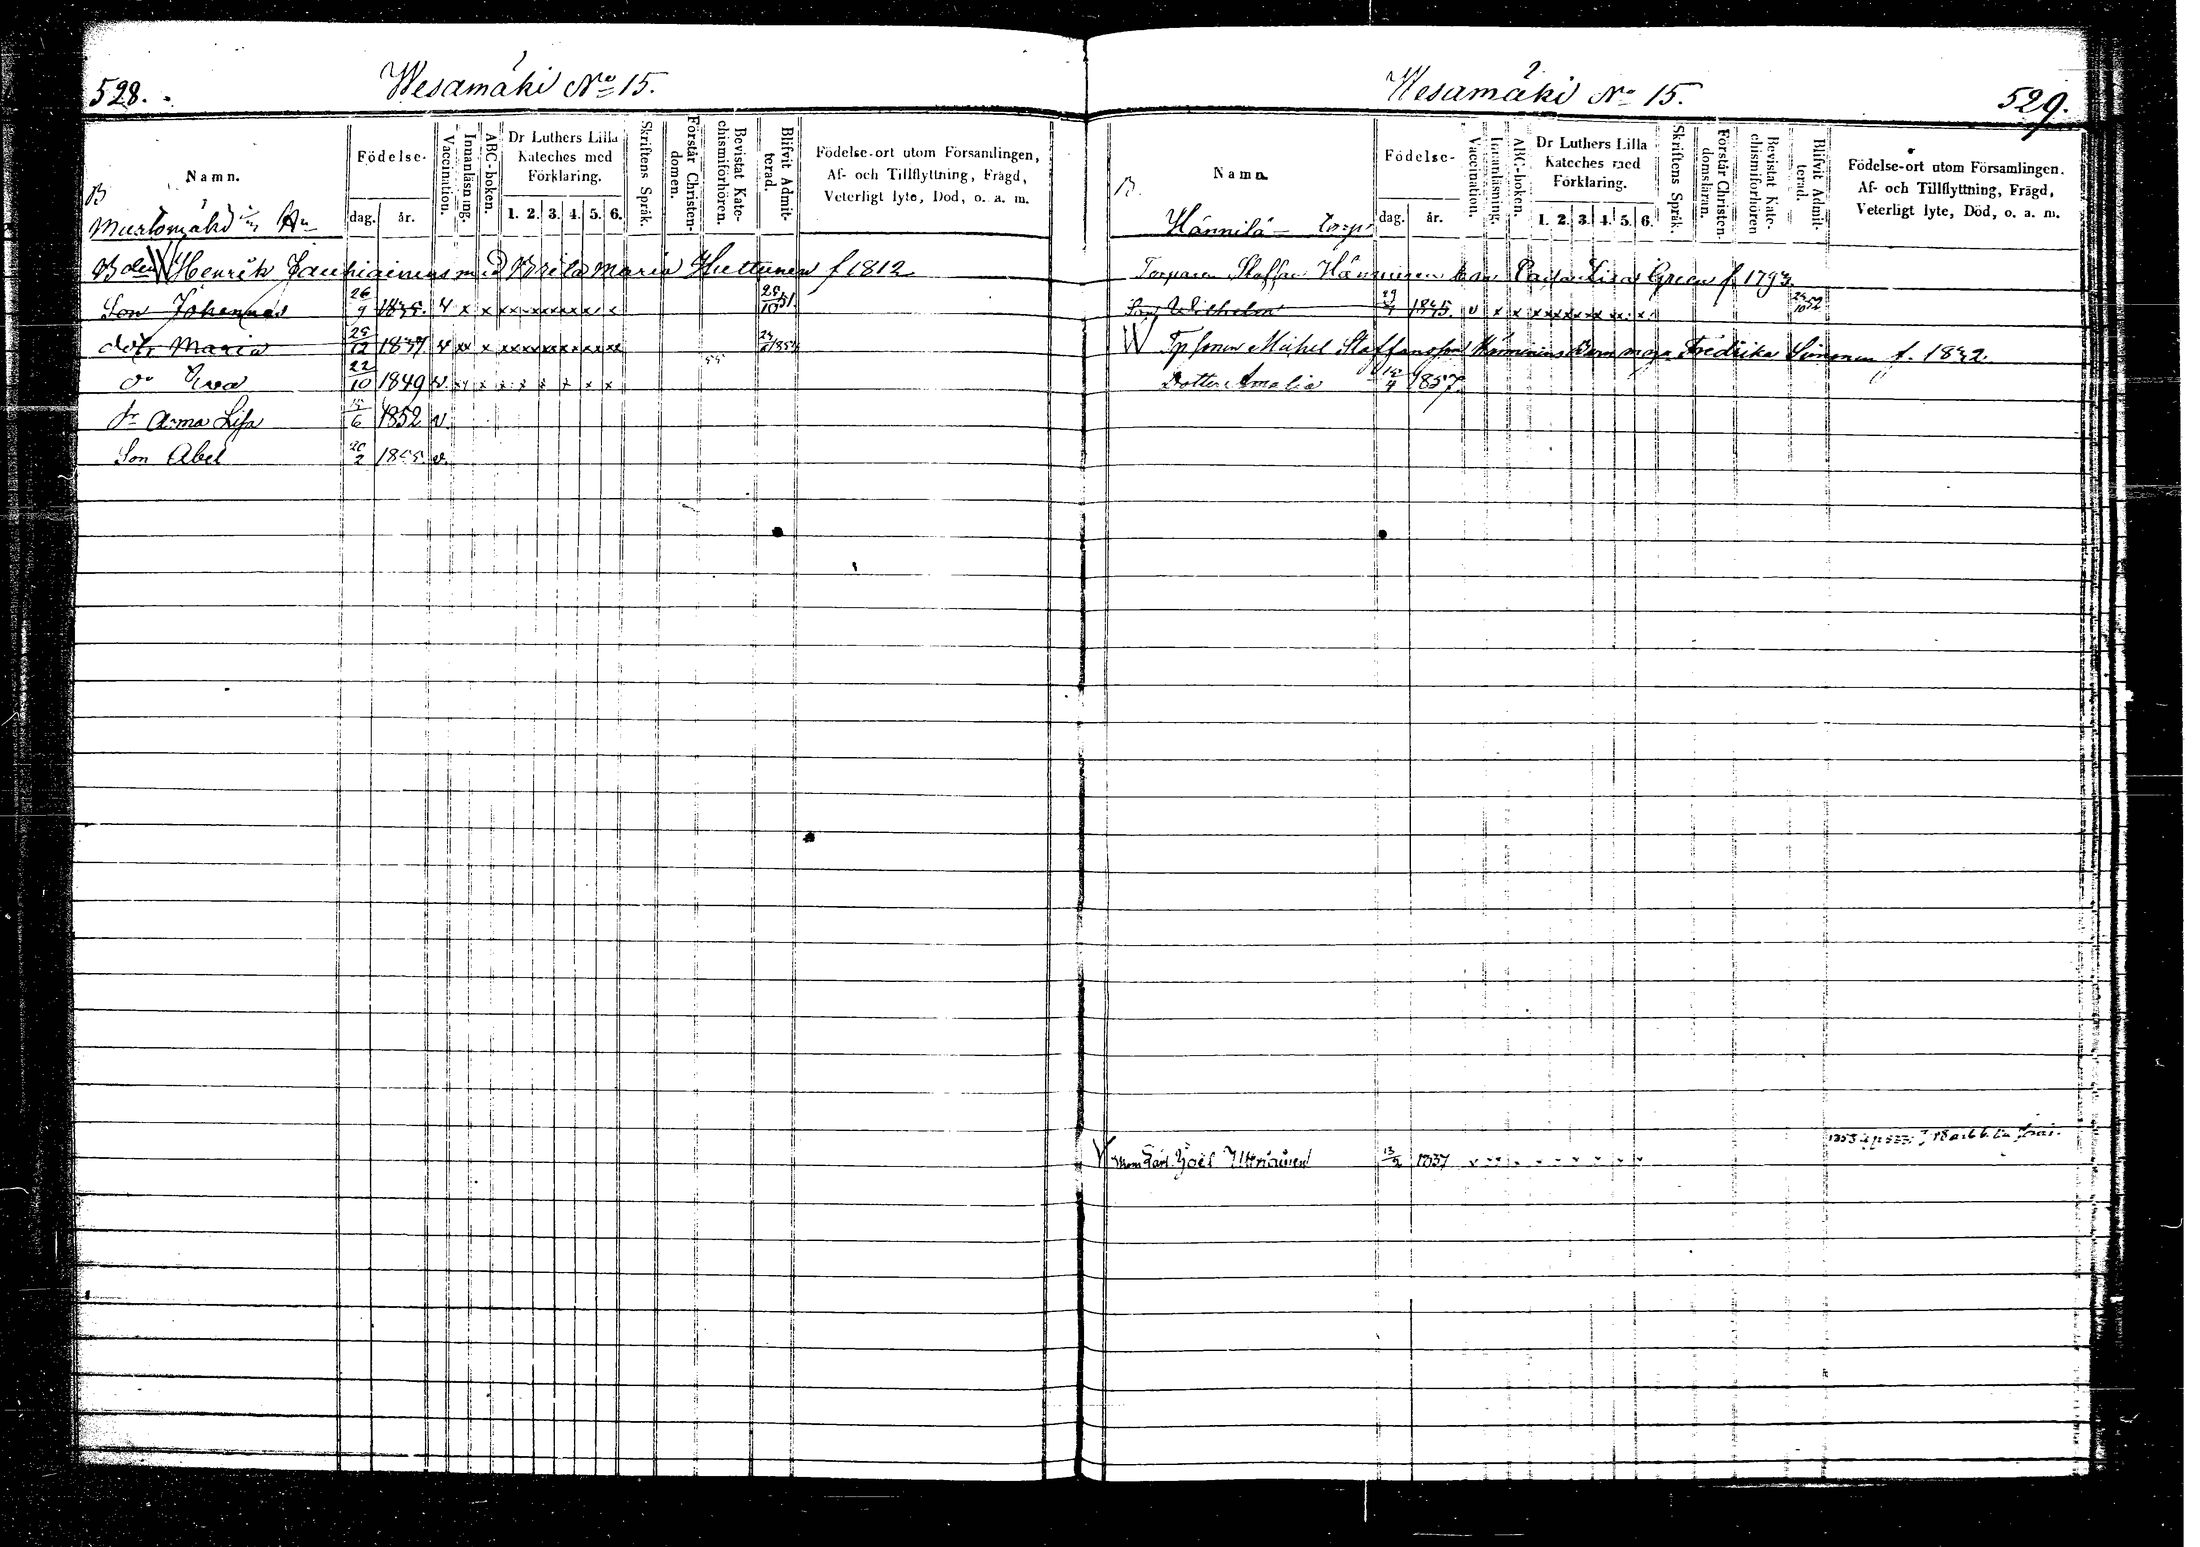 528.
Wesamäki No 15.
Namn.
Födelse-
dag. år.
Vaccination.
Innanläsning.
ABC-boken.
Dr Luthers Lilla
Kateches med
Förklaring.
1. 2. 3. 4. 5. 6.
Skriftens Språk.
Förstår Christen-
domen.
Bevistat Kate-
chismiförhören.
Blifvit Admit-
terad.
Födelse-ort utom Församlingen,
Af- och Tillflyttning, Frägd,
Veterligt lyte, Död, o. a. m.
B
Murtomäki
Henrik Jauhiainens med Brita Maria Huttunen f 1812
Son Johannes 26/9 1835. v x x 51
dotr Maria 25/12 1837 v xx x
do Eva 22/10 1849 v x x x x x x x x
55
dr Anna Lisa 6 1852 v
Son Abel 20/2 1855 v.
Wesamäki No 15.
529.
Namn.
Födelse-
dag. år.
Vaccination.
Innanläsning.
ABC-boken.
Dr Luthers Lilla
Kateches med
Förklaring.
1. 2. 3. 4. 5. 6.
Skriftens Språk.
Förstår Christen-
domsläran.
Bevistat Kate-
chismiförhören
Blifvit Admit-
terad.
Födelse-ort utom Församlingen.
Af- och Tillflyttning, Frägd,
Veterligt lyte, Död, o. a. m.
B.
Hännilä torp
Torparen Staffan Hänninen Lisa Green f 1793.
Son Wilhelm 1835. v x x 52
Michel Staffansson Hänninens Fredrika Simonen f. 1832
Dotter Amalia 4 1857.
Carl Joel 13 1837